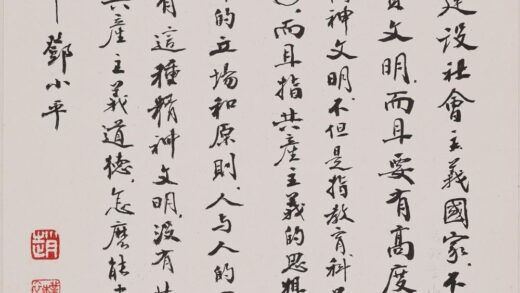 建设社會主義國家,不
文明,而且要有高度
神文明.不但是指教育.科
而且指共産主義的思想
的立場和原則.人与人的
有這種精神文明,没有共
共産主義道德,怎麽能
鄧小平
趙